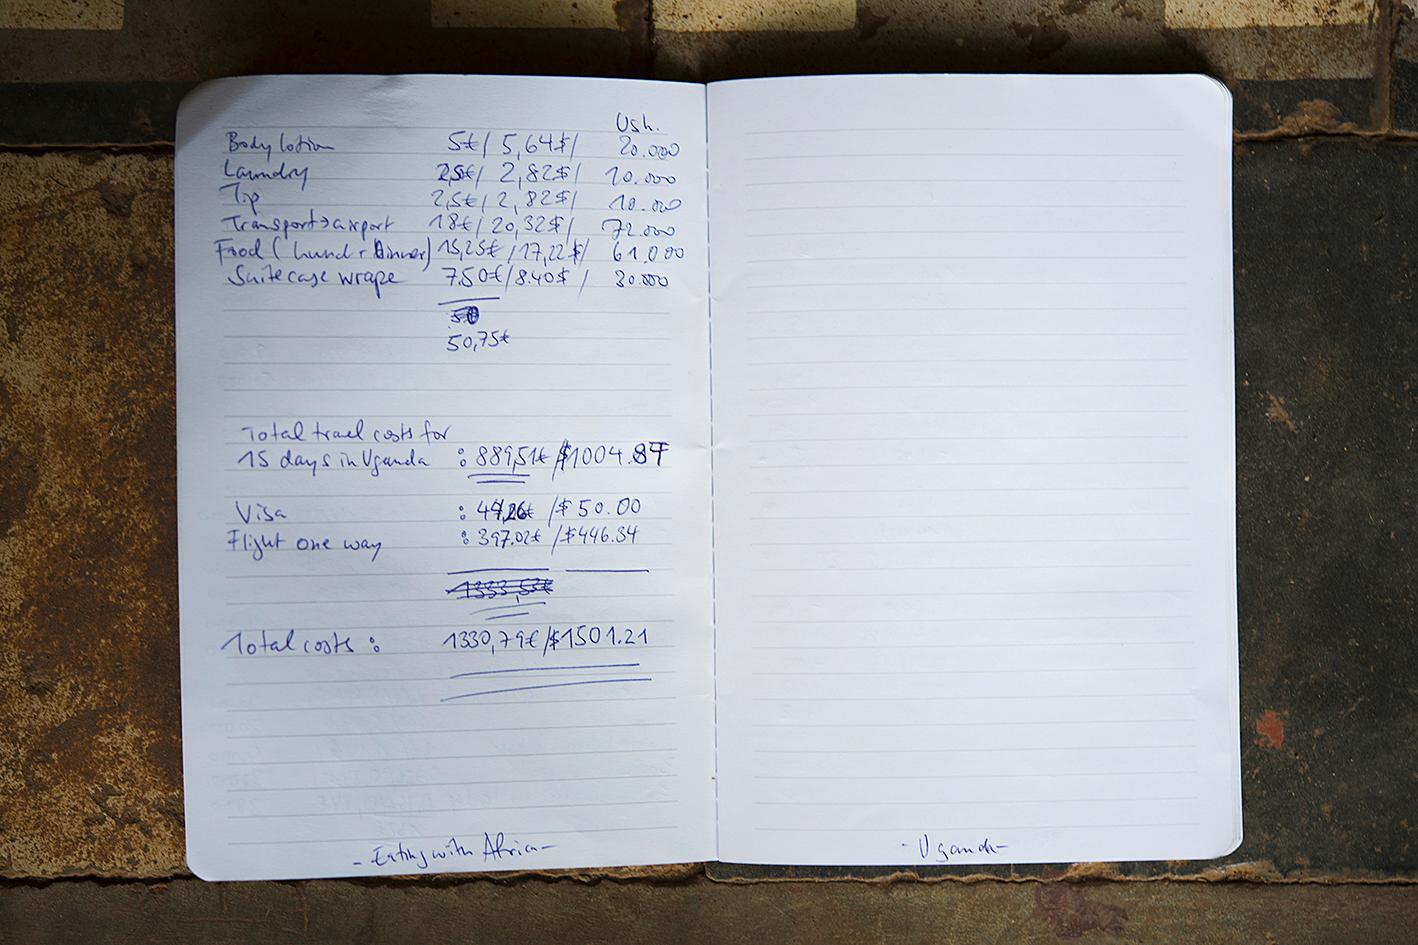 Ush.
Body lotion 5€/ 5,64$/ 20.000
Laundry 2,5€/ 2,82$/ 10.000
Tip 2,5€/ 2,82$/ 10.000
Transport→airport 18€/ 20,32$/ 72.000
Food (Lunch + Dinner) 15,25€ /17,22$/ 61.000
Suitecase wrape 7.50€/8.40$ / 30.000
50,75€
Total travel costs for
15 days in Uganda : 889,51€ /$1004.87
Visa : /$ 50.00
Flight one way : 397.02€ /$446.34
1333,53€
Total costs : 1330,79€ /$1501.21
- Eating with Africa -
- Uganda -